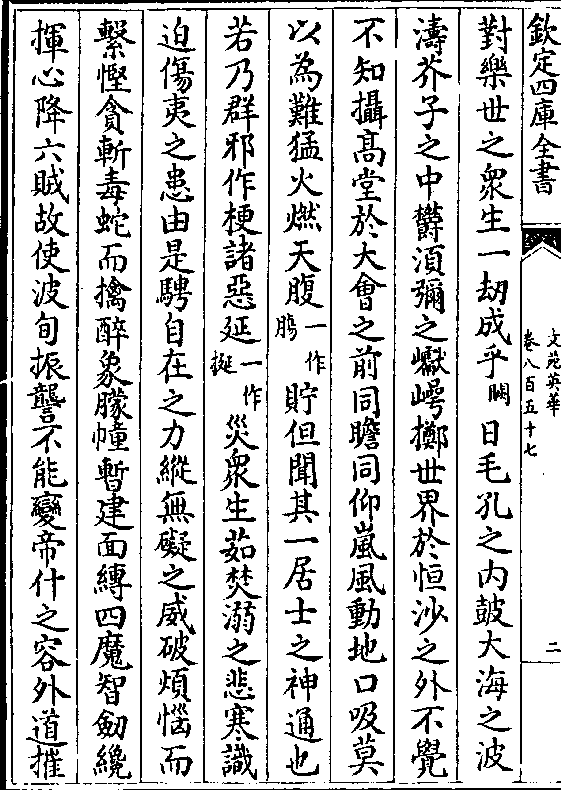 欽定四庫全書
文苑英華
卷八百五十七
二
對樂世之衆生一劫成乎闕日毛孔之内鼓大海之波
濤芥子之中欝湏彌之嶽㠋擲世界於恒沙之外不覺
不知攝髙堂於大會之前同瞻同仰嵐風動地口吸莫
以為難猛火燃天腹一作鴈貯但聞其一居士之神通也
若乃群邪作梗諸惡延一作挻災衆生茹焚溺之悲寒識
迫傷夷之患由是騁自在之力縱無礙之威破煩惱而
繫慳貪斬毒蛇而擒醉象朦幢暫建面縳四魔智劒纔
揮心降六賊故使波旬振讋不能變帝什之容外道摧